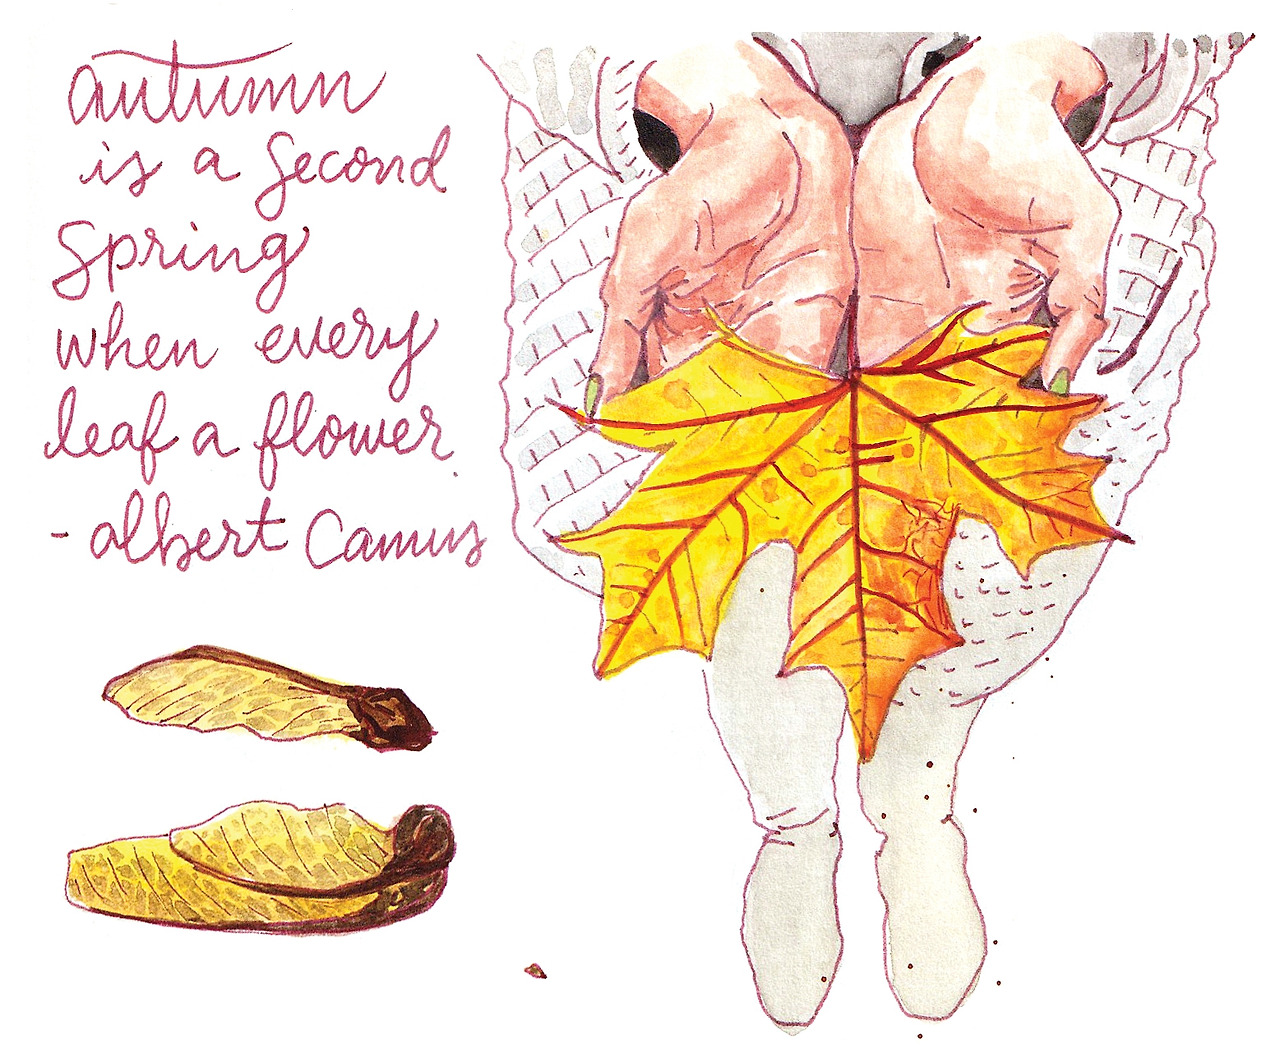 autumn
is a second
Spring
when every
leaf a flower.
- albert Camus